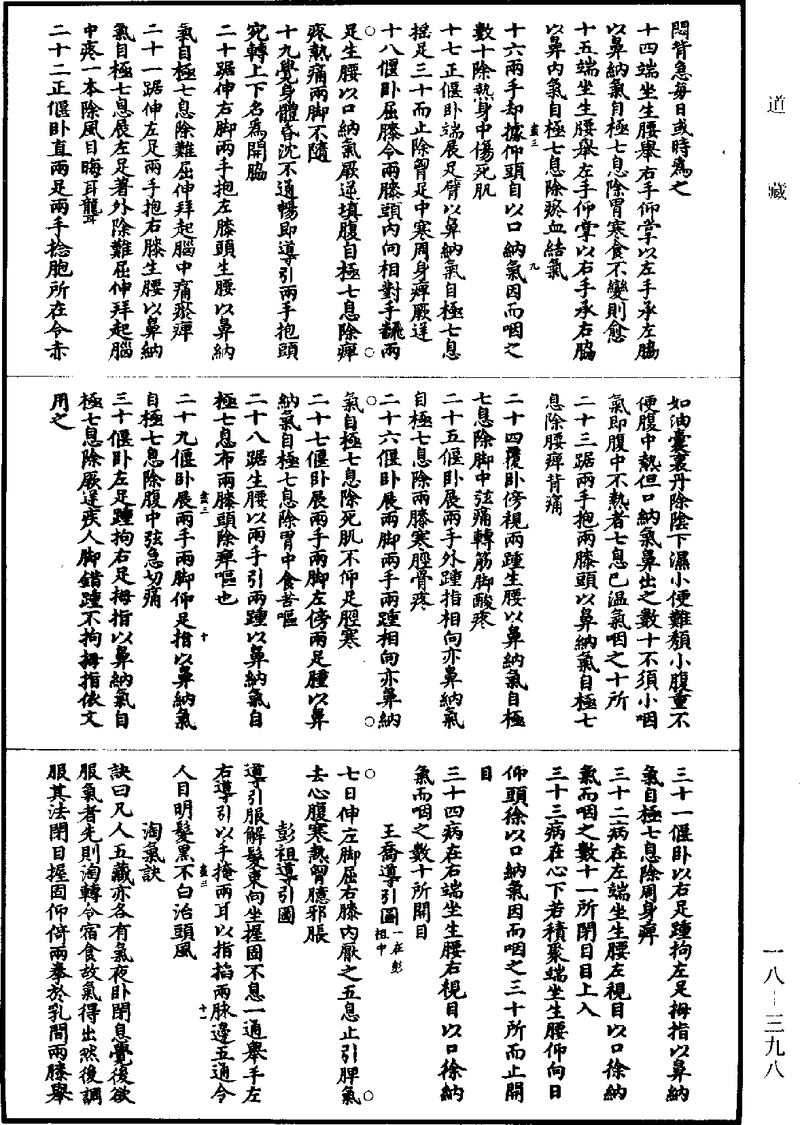 道藏
悶背急每日或時為之
十四端坐生腰舉右手仰掌以左手承左脇
以鼻納氣自極七息除胃寒食不變則愈
十五端坐生腰舉左手仰掌以右手承右脇
以鼻內氣自極七息除瘀血結氣
十六兩手却據仰頭自以口納氣因而咽之
數十除熱身中傷死肌
十七正偃卧端展足臂以鼻納氣自極七息
搖足三十而止除胷足中寒周身痺厥逆
十八偃卧屈膝令兩膝頭內向相對手翻兩
足生腰以口納氣厥逆填腹自極七息除痺
疼熱痛兩脚不隨
十九覺身體昏沈不通暢即導引兩手抱頭
宛轉上下名為開脇
二十踞伸右脚兩手抱左膝頭生腰以鼻納
氣自極七息除難屈伸拜起腦中痛瘀痺
二十一踞伸左足兩手抱右膝生腰以鼻納
氣自極七息展左足著外除難屈伸拜起腦
中疼一本除風目晦耳聾
二十二正偃卧直兩足兩手捻胞所在令赤
如油囊裹丹除陰下濕小便難頹小腹重不
便腹中熱但口納氣鼻出之數十不須小咽
氣即腹中不熱者七息已溫氣咽之十所
二十三踞兩手抱兩膝頭以鼻納氣自極七
息除腰痺背痛
二十四覆卧傍視兩踵生腰以鼻納氣自極
七息除脚中弦痛轉筋脚酸疼
二十五偃卧展兩手外踵指相向亦鼻納氣
自極七息除兩膝寒脛骨疼
二十六偃卧展兩脚兩手兩踵相向亦鼻納
氣自極七息除死肌不仰足脛寒
二十七偃卧展兩手兩脚左傍兩足踵以鼻
納氣自極七息除胃中食苦嘔
二十八踞生腰以兩手引兩踵以鼻納氣自
極七息布兩膝頭除痺嘔也
二十九偃卧展兩手兩脚仰足指以鼻納氣
自極七息除腹中弦急切痛
三十偃卧左足踵拘右足拇指以鼻納氣自
極七息除厥逆疾人脚錯踵不拘拇指依文
用之
三十一偃卧以右足踵拘左足拇指以鼻納
氣自極七息除周身痺
三十二病在左端坐生腰左視目以口徐納
氣而咽之數十一所閉目目上入
三十三病在心下若積聚端坐生腰仰向日
仰頭徐以口納氣因而咽之三十所而止開
目
三十四病在右端坐生腰右視目以口徐納
氣而咽之數十所開目
王喬導引圖一在彭祖中
七日伸左脚屈右膝內厭之五息止引脾氣
去心腹寒熱胷臆邪脹
彭祖導引圖
導引服解髮東向坐握固不息一通舉手左
右導引以手掩兩耳以指掐兩脉邊五通令
人目明髮黑不白治頭風
淘氣訣
訣曰凡人五藏亦各有氣夜卧閉息覺後欲
服氣者先則淘轉令宿食故氣得出然後調
服其法閉目握固仰倚兩拳於乳間兩膝舉
一八-三九八